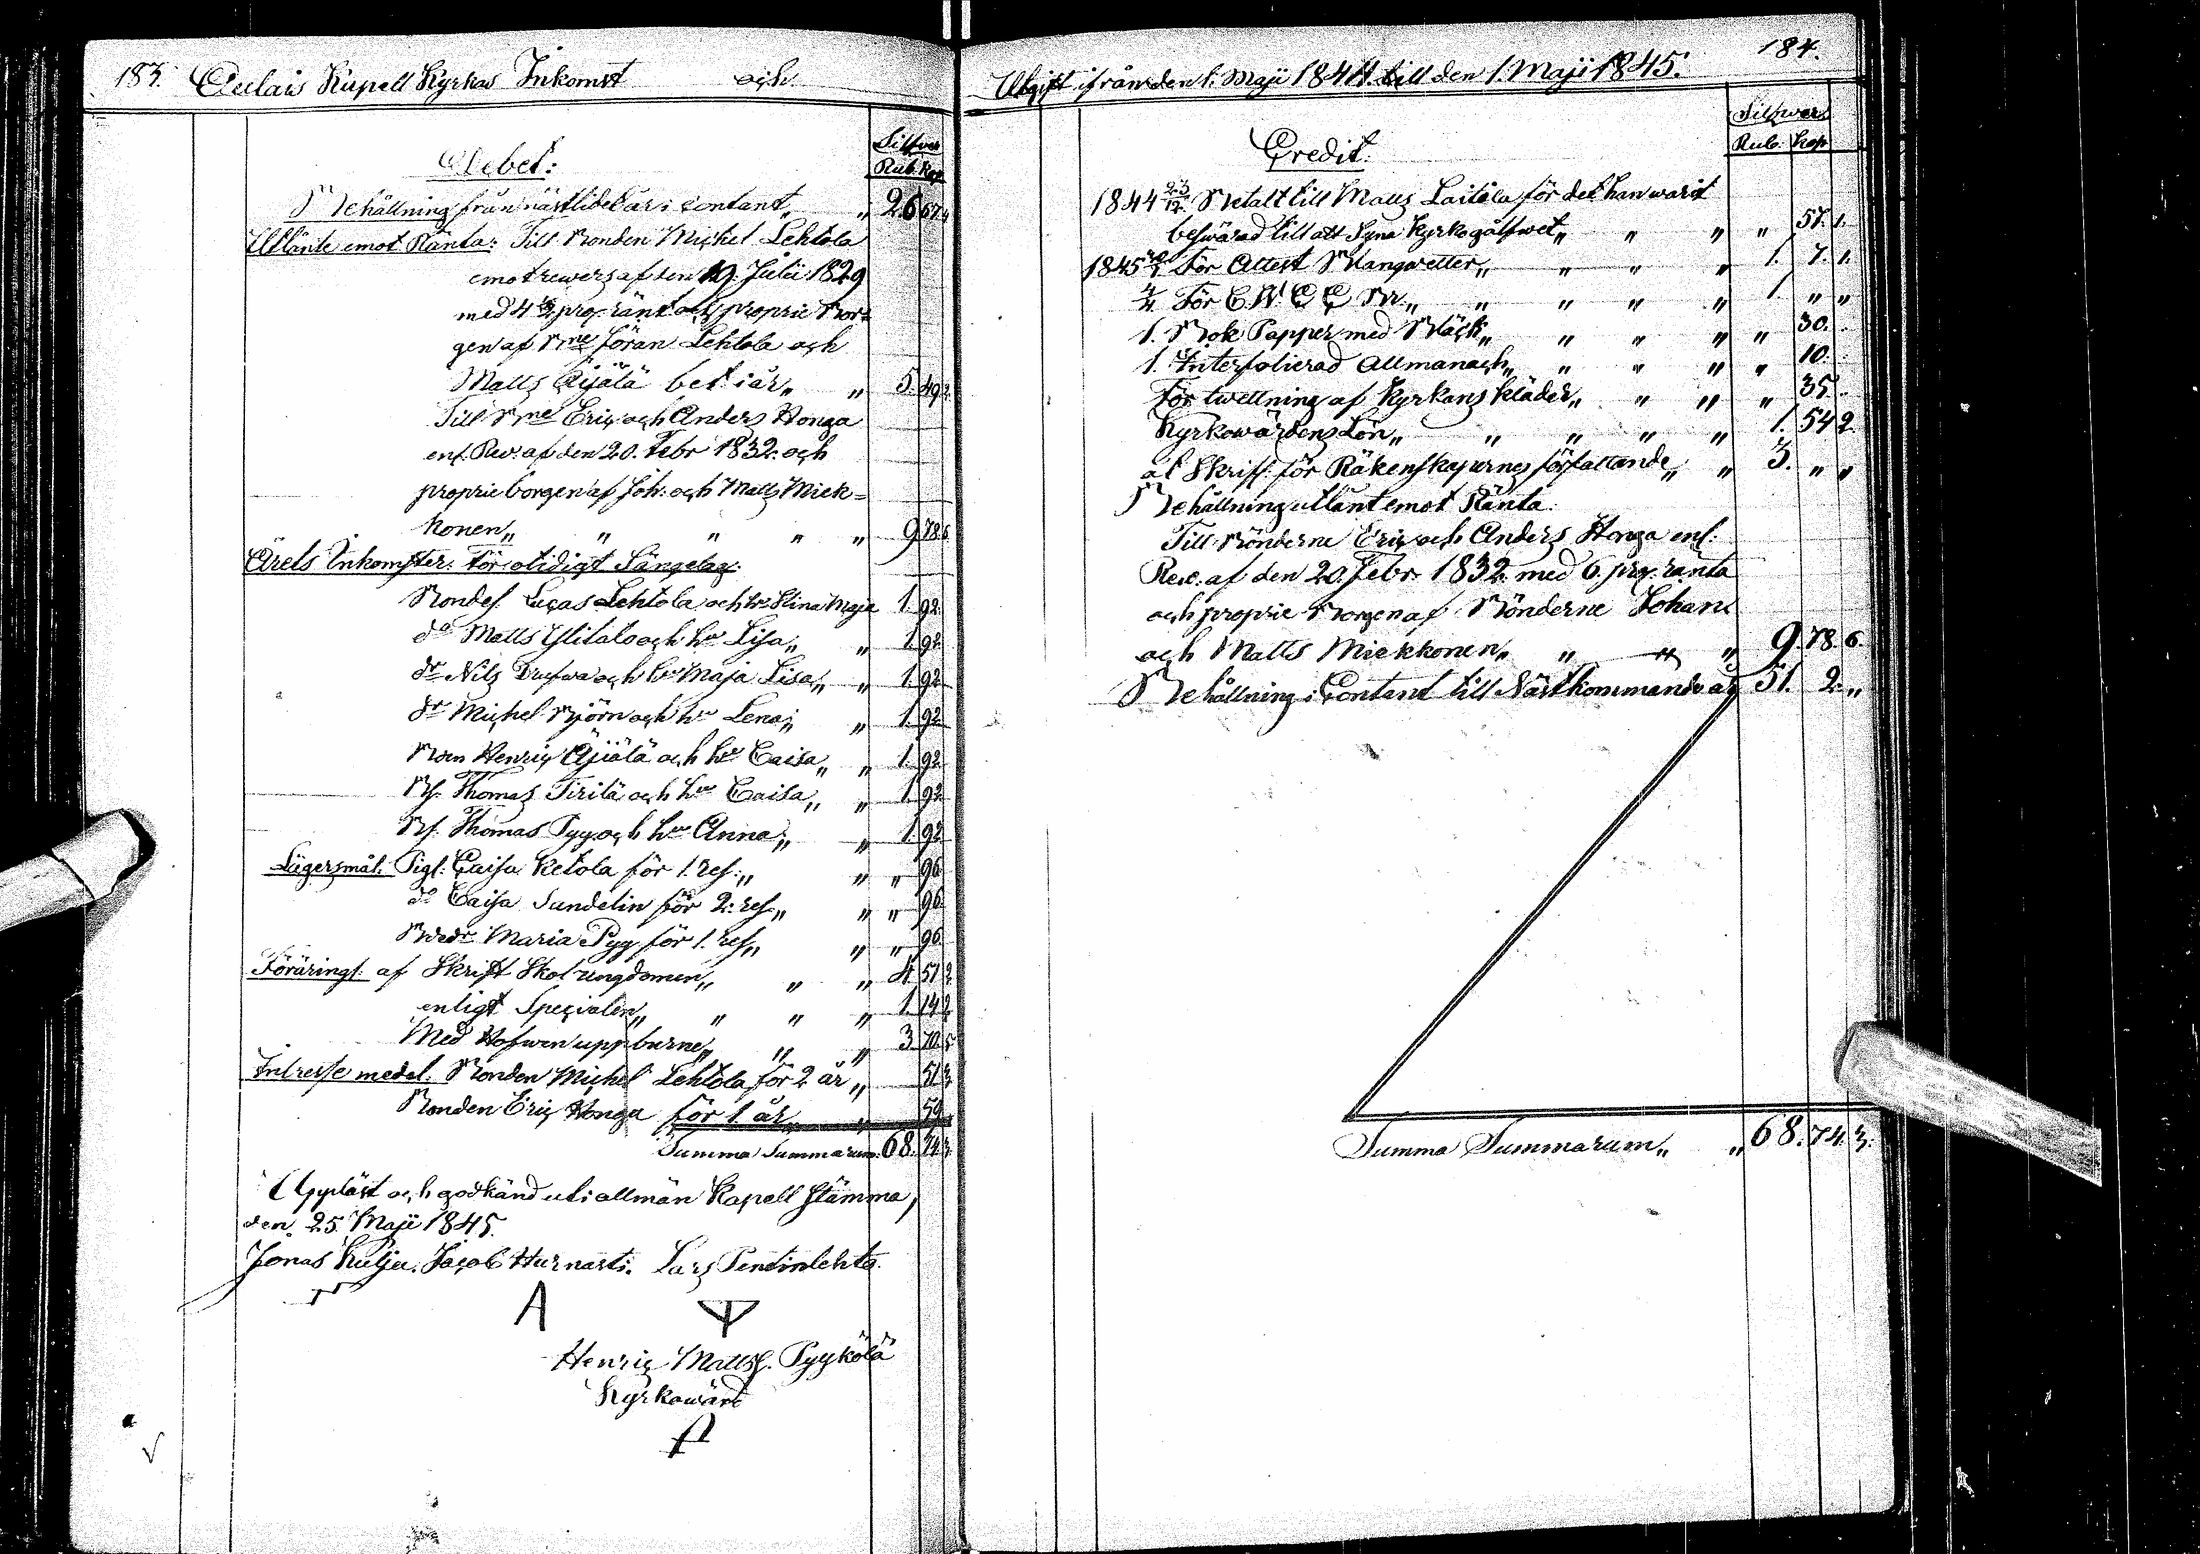 183. Oulais Kapell Kyrkas Inkomst och
Debet:
Silfver
Rub. Kop.
Behållning från nästlidet år i contant „ „ 26 67 4
Utlänte emot Ränta: Till Bonden Michel Lehtola
emot revers af den 19. Julii 1829
med 4 ½ pro. ränt och proprie Bor=
gen af Bme Jöran Lehtola och
Matts Äijälä bet. i år „ „ 5. 49 2.
Till Bme Eric och Anders Honga
enl. Rev. af den 20. Febr 1832. och
proprie borgen af Joh: och Matts Miek=
konen „ „ „ „ „ 9 78 6
Årets Inkomster: För otidigt Sängelag:
Bondes. Lucas Lehtola och hu Stina Maja 1. 92.
do Matts Ylitalo och hu Lisa „ „ 1. 92
do Nils och hu Maja Lisa „ „ 1. 92
do Michel Björn och hu Lena „ „ 1. 92
Bon Henric Äijälä och hu Caisa „ „ 1 92
Bs. Thomas Tirilä och hu Caisa „ „ 1. 92
Bs. Thomas Pyg och hu Anna „ „ 1 92
Lägersmål: Pig: Caisa Ketola för 1. res: „ „ „ 96
do Caisa Sundelin för 2: res „ „ „ 96
Maria Pyg för 1. res „ „ „ 96
Förärings: af Skrift Skol ungdomen „ „ „ 4 51 2
enligt Specialen „ „ „ „ 1. 14 2
Med Hofwen uppburne „ „ „ 3 70 5
Intresse medel: Bonden Michel Lehtola för 2 år „ 51 3
Bonden Eric Honga för 1 år „ „ 59
Summa Summarum. 68. 74 3.
Uppläst och godkänd uti allmän Kapell stämma,
den 25. Maji 1845.
Jonas Kulju. Jacob Hurnasti. Lars Pentinlehto.
Henric Mattss. Pyykölä
Kyrkowärd
Utgift ifrån den 1. Maji 1844. till den 1. Maji 1845. 184.
Credit.
Silfwer
Rub. Kop
1844 23/12. Betalt till Matts Laitila för det han warit
beswärad till att Syna Kyrkogålfwet „ „ „ „ 57. 1.
1845 För Attest Blanqvetter „ „ „ „ 1. 7. 1.
För „ „ „ „ 1. „ „
1. Bok Papper med Bläck „ „ „ „ „ 30.
1. Interfolierad Allmanach „ „ „ „ „ 10.
För twettning af Kyrkans kläder „ „ „ „ 35.
Kyrkowärdens Lön „ „ „ „ „ 1. 54 2.
af Skrif. för Räkenskapernes författande „ „ 3. „ „
Behållning utlänt emot Ränta.
Till Bönderne Eric och Anders Honga enl:
Rev. af den 20. Febr. 1832. med 6. pro. ränta
och proprie Borgen af Bönderne Johan
och Matts Miekkonen „ „ „ „ 9. 78. 6.
Behållning i Contant till Nästkommande år 51. 2. „
Summa Summarum „ „ 68. 74. 3.